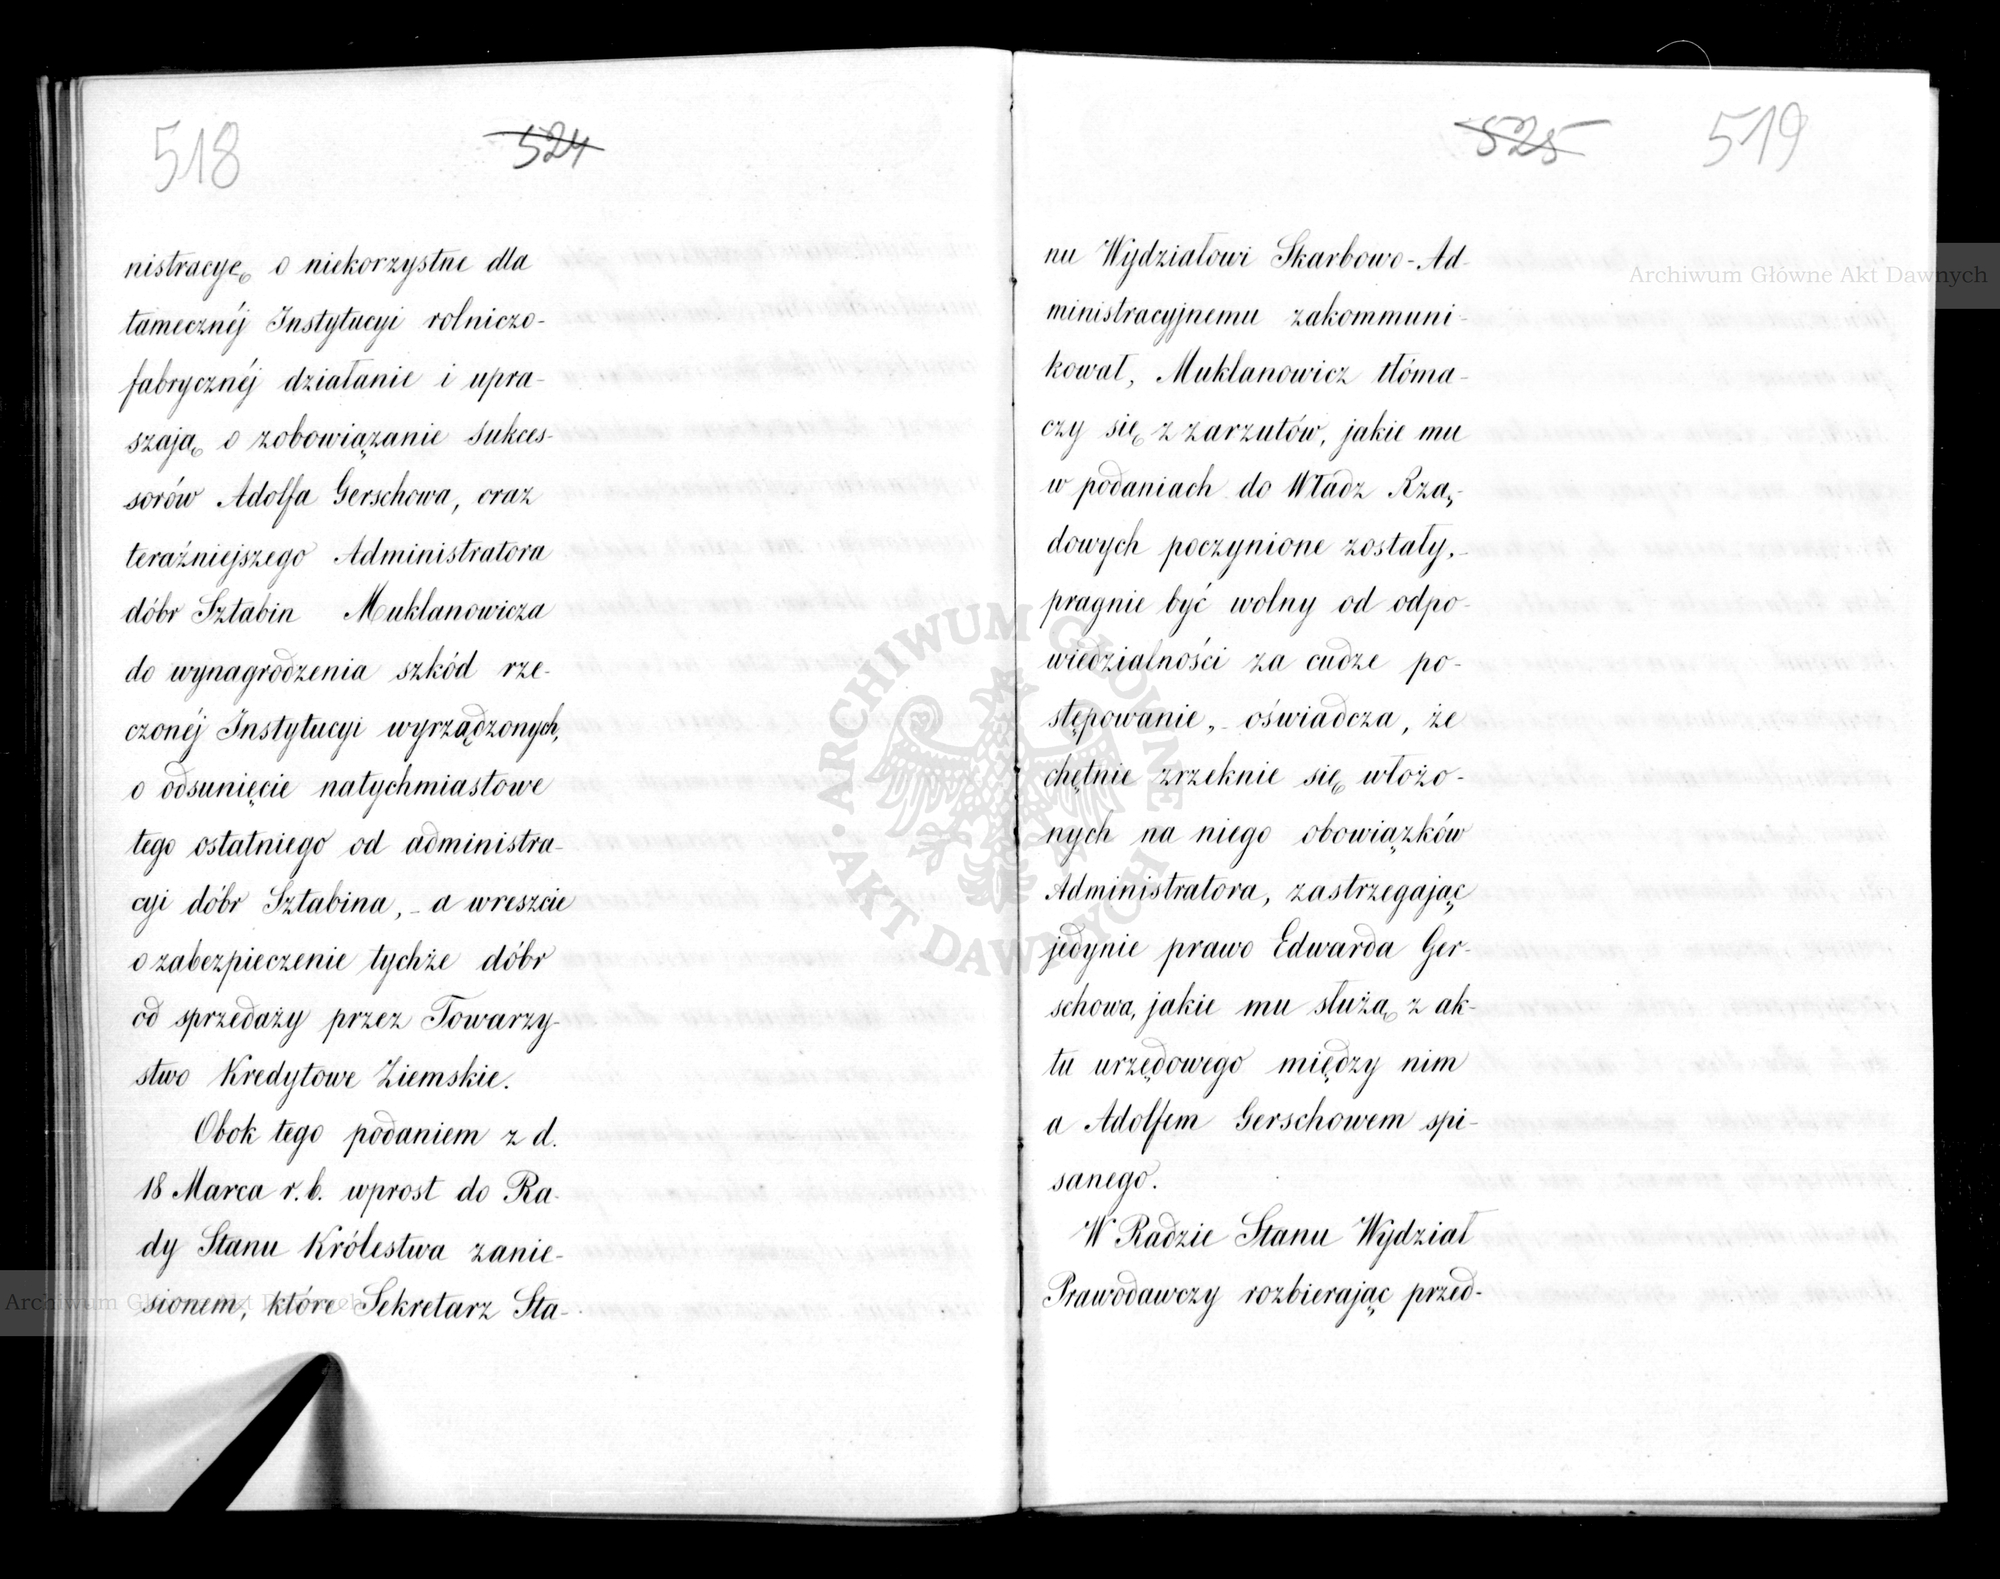 518
524
nistracyę o niekorzystne dla
tamecznéj Instytucyi rolniczo-
fabrycznéj działanie i upra-
szają o zobowiązanie sukces-
sorów Adolfa Gerschowa, oraz
teraźniejszego Administratora
dóbr Sztabin Muklanowicza
do wynagrodzenia szkód rze-
czonéj Instytucyi wyrządzonych,
o odsunięcie natychmiastowe
tego ostatniego od administra-
cyi dóbr Sztabina, - a wreszcie
o zabezpieczenie tychże dóbr
od sprzedaży przez Towarzy-
stwo Kredytowe Ziemskie.
Obok tego podaniem z d.
18 Marca r. b. wprost do Ra-
dy Stanu Królestwa zanie-
sionem, które Sekretarz Sta-
525
519
nu Wydziałowi Skarbowo-Ad-
ministracyjnemu zakommuni-
kował, Muklanowicz tłóma-
czy się z zarzutów, jakie mu
w podaniach do Władz Rzą-
dowych poczynione zostały, -
pragnie być wolny od odpo-
wiedzialności za cudze po-
stępowanie, - oświadcza, że
chętnie zrzeknie się włożo-
nych na niego obowiązków
Administratora, zastrzegając
jedynie prawo Edwarda Ger-
schowa, jakie mu służą z ak-
tu urzędowego między nim
a Adolfem Gerschowem spi-
sanego.
W Radzie Stanu Wydział
Prawodawczy rozbierając przed-
Archiwum Główne Akt Dawnych
Archiwum Główne Akt Dawnych
ARCHIWUM GŁÓWNE
AKT DAWNYCH